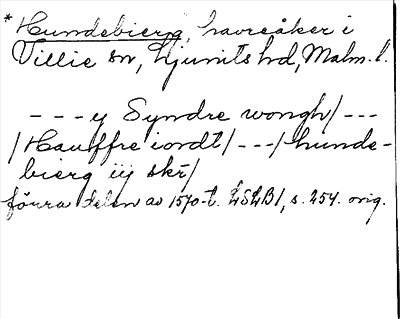 * Hundebierg, havreåker i
Villie sn, Ljunits hd, Malm. l.
- - - y Syndre wongh/ - - -
/Hauffre iordt/ - - -/hunde-
bierg iij skr/
förra delen av 1570-t. LSLB1, s. 254. orig.